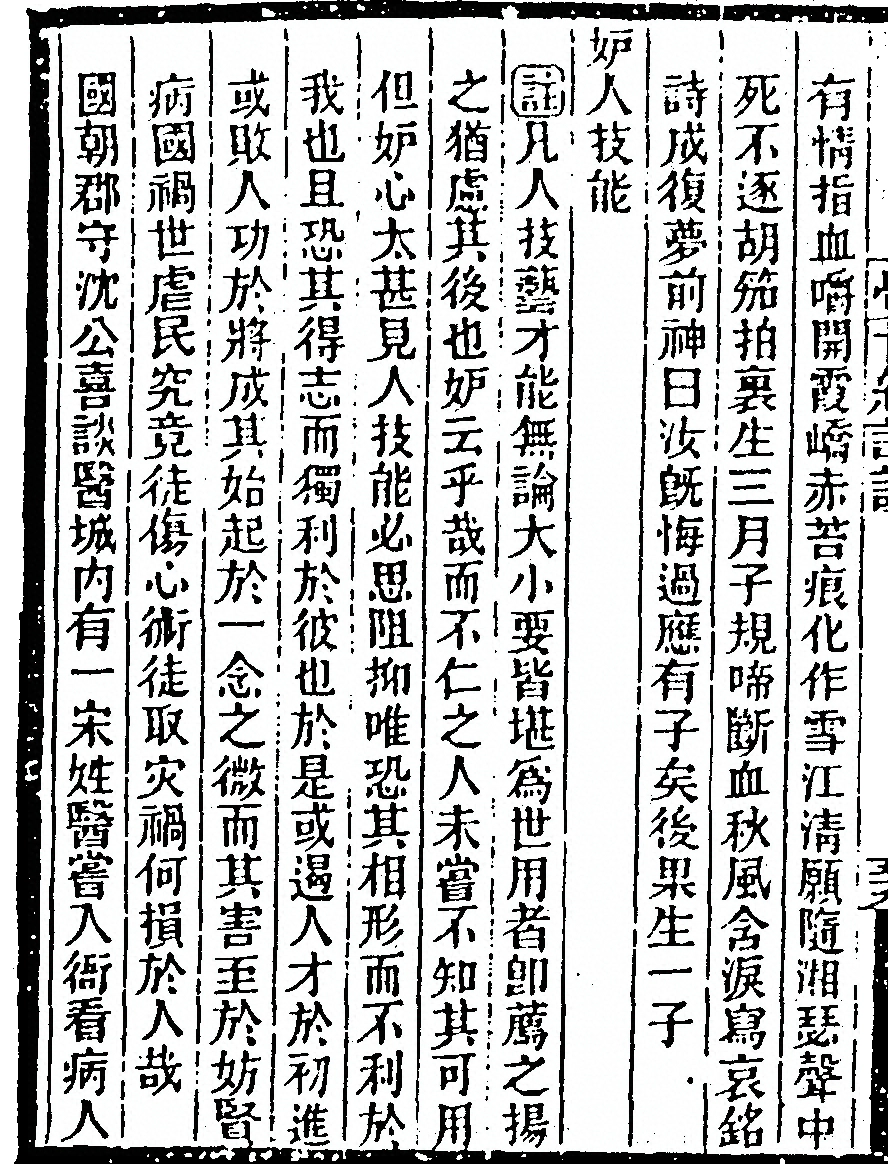 有情指血嚼開霞嶠赤苔痕化作雪江清願隨湘瑟聲中
死不逐胡笳拍裏生三月子規啼斷血秋風含淚寫哀銘
詩成復夢前神曰汝旣悔過應有子矣後果生一子
妒人技能
註凡人技藝才能無論大小要皆堪爲世用者卽薦之揚
之猶慮其後也妒云乎哉而不仁之人未嘗不知其可用
但妒心太甚見人技能必思阻抑唯恐其相形而不利於
我也且恐其得志而獨利於彼也於是或遏人才於初進
或敗人功於將成其始起於一念之微而其害至於妨賢
病國禍世虐民究竟徒傷心術徒取灾禍何損於人哉
國朝郡守沈公喜談醫城内有一宋姓醫嘗入衙看病人